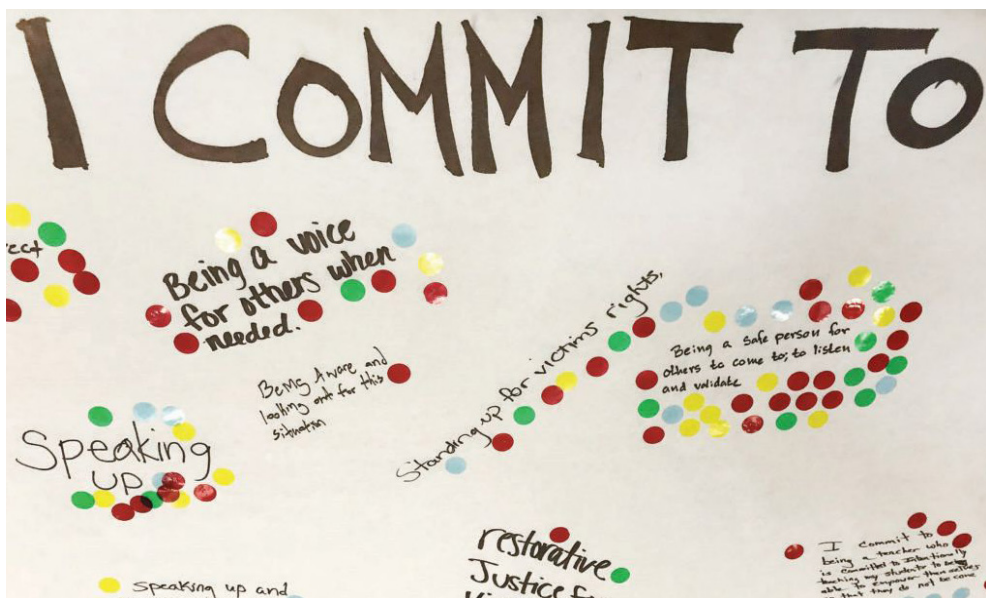 I COMMIT TO
Being a voice
for others when
needed.
Being Aware and
looking out for this
situation
Standing up for victims rights,
Being a safe person for
others to come to; to listen
and validate
Speaking
UP
Speaking up and
restorative
Justice f
I commit to
being a teacher who
is committed to Intentionally
teaching my students to
able to empower themselves
that they do not become